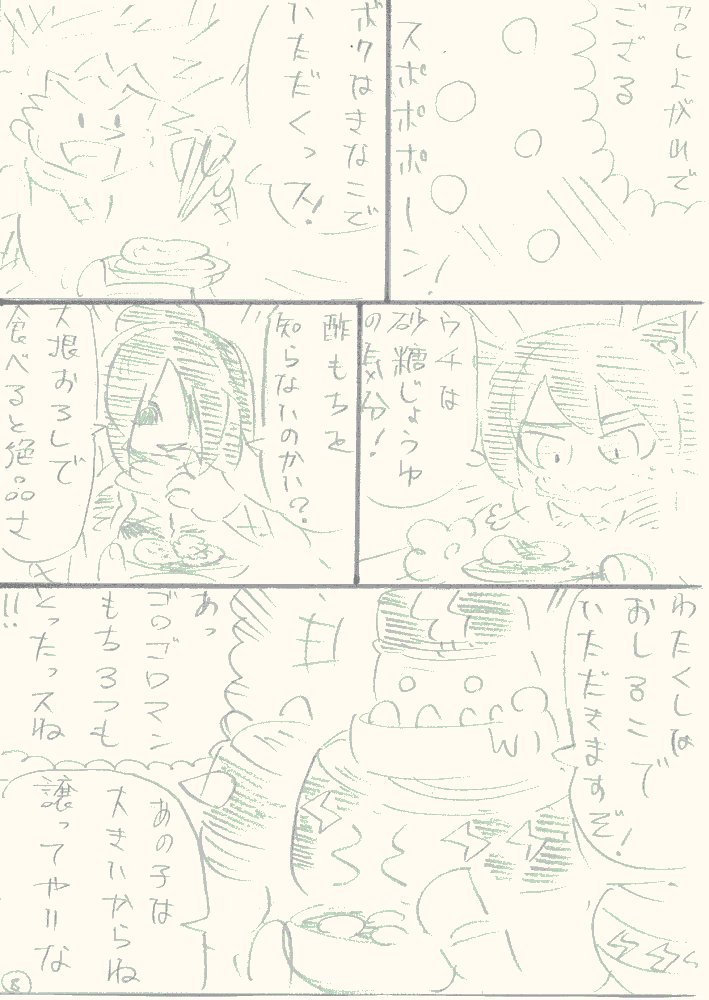 召し上がれで
ござる
スポポポーン!
ボクはきなこで
いただくっス!
ウチは
砂糖じょうゆ
の気分!
酢もちを
知らないのかい?
大根おろしで
食べると絶品さ
わたくしは
おしるこで
いただきますぞ!
あっ
ゴロゴロマン
もち3つも
とったっスね
!!
あの子は
大きいからね
譲ってやりな
8